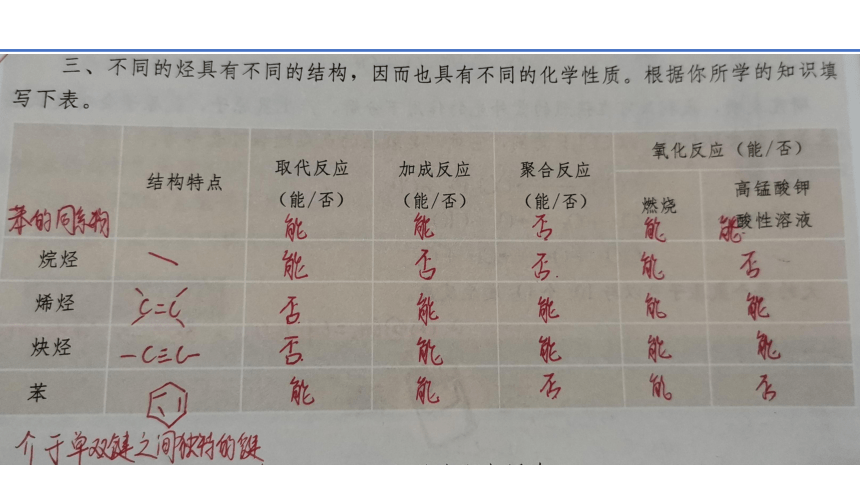 三、不同的烃具有不同的结构，因而也具有不同的化学性质。根据你所学的知识填
写下表。
结构特点 取代反应（能/否） 加成反应（能/否） 聚合反应（能/否） 氧化反应（能/否）
燃烧 高锰酸钾酸性溶液
苯的同系物 能 能 否 能 能
烷烃 能 否 否 能 否
烯烃 C=C 否 能 能 能 能
炔烃 -C≡C- 否 能 能 能 能
苯 能 能 否 能 否
介于单双键之间独特的键